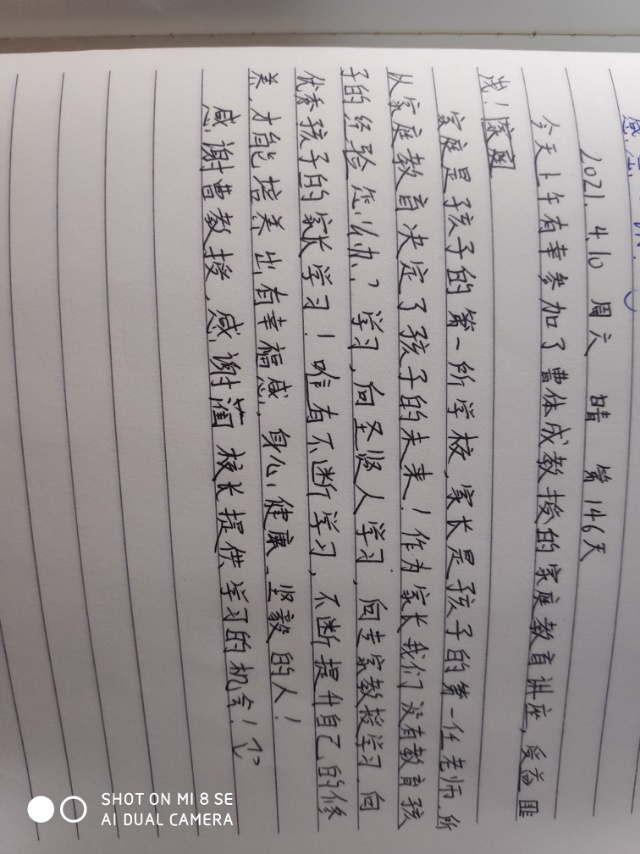 2021.4.10 周六 晴 第146天
今天上午有幸参加了曹体成教授的家庭教育讲座,受益匪
浅!
家庭是孩子的第一所学校,家长是孩子的第一任老师,所
以家庭教育决定了孩子的未来!作为家长我们没有教育孩
子的经验怎么办?学习,向圣贤人学习,向专家教授学习,向
优秀孩子的家长学习!唯有不断学习,不断提升自己的修
养,才能培养出有幸福感,身心健康、坚毅的人!
感谢曹教授,感谢蔺校长提供学习的机会!
SHOT ON MI 8 SE
AI DUAL CAMERA